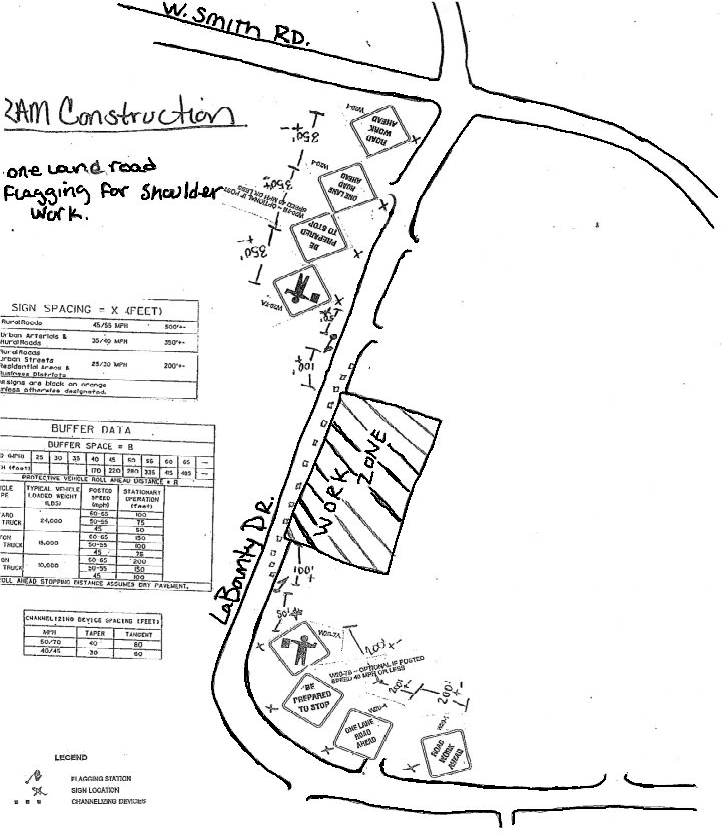 W. Smith RD.
2AM Construction
one Land road
Flagging for Shoulder
Work.
W20-1
ROAD
WORK
AHEAD
350'
+-
W20-4
ONE LANE
ROAD
AHEAD
350'+-
W20-7B - OPTIONAL IF POSTED
SPEED 40 MPH OR LESS
BE
PREPARED
TO STOP
350'
+-
W20-7A
50'
100'
+-
WORK
ZONE
LaBounty Dr.
SIGN SPACING = X (FEET)
Rural Roads 45/55 MPH 500'+-
Urban Arterials &
Rural Roads 35/40 MPH 350'+-
Rural Roads
Urban Streets
Residential Areas &
Business Districts 25/30 MPH 200'+-
signs are black on orange
unless otherwise designated.
BUFFER DATA
BUFFER SPACE = B
(MPH) 25 30 35 40 45 50 55 60 65 —
H (feet) 170 220 280 335 415 485 —
PROTECTIVE VEHICLE ROLL AHEAD DISTANCE = R
TYPICAL VEHICLE
LOADED WEIGHT
(LBS)
POSTED
SPEED
(mph)
STATIONARY
OPERATION
(feet)
TRUCK 24,000
60-65 100
50-55 75
45 50
TRUCK 15,000
60-65 150
50-55 100
45 75
TRUCK 10,000
60-65 200
50-55 150
45 100
ROLL AHEAD STOPPING DISTANCE ASSUMES DRY PAVEMENT.
CHANNELIZING DEVICE SPACING (FEET)
MPH TAPER TANGENT
50/70 40 80
40/45 30 60
100'
+-
50'
W20-7A
200'+-
W20-7B - OPTIONAL IF POSTED
SPEED 40 MPH OR LESS
BE
PREPARED
TO STOP
200'
+-
W20-4
ONE LANE
ROAD
AHEAD
200'
+-
W20-1
ROAD
WORK
AHEAD
LEGEND
FLAGGING STATION
SIGN LOCATION
CHANNELIZING DEVICES